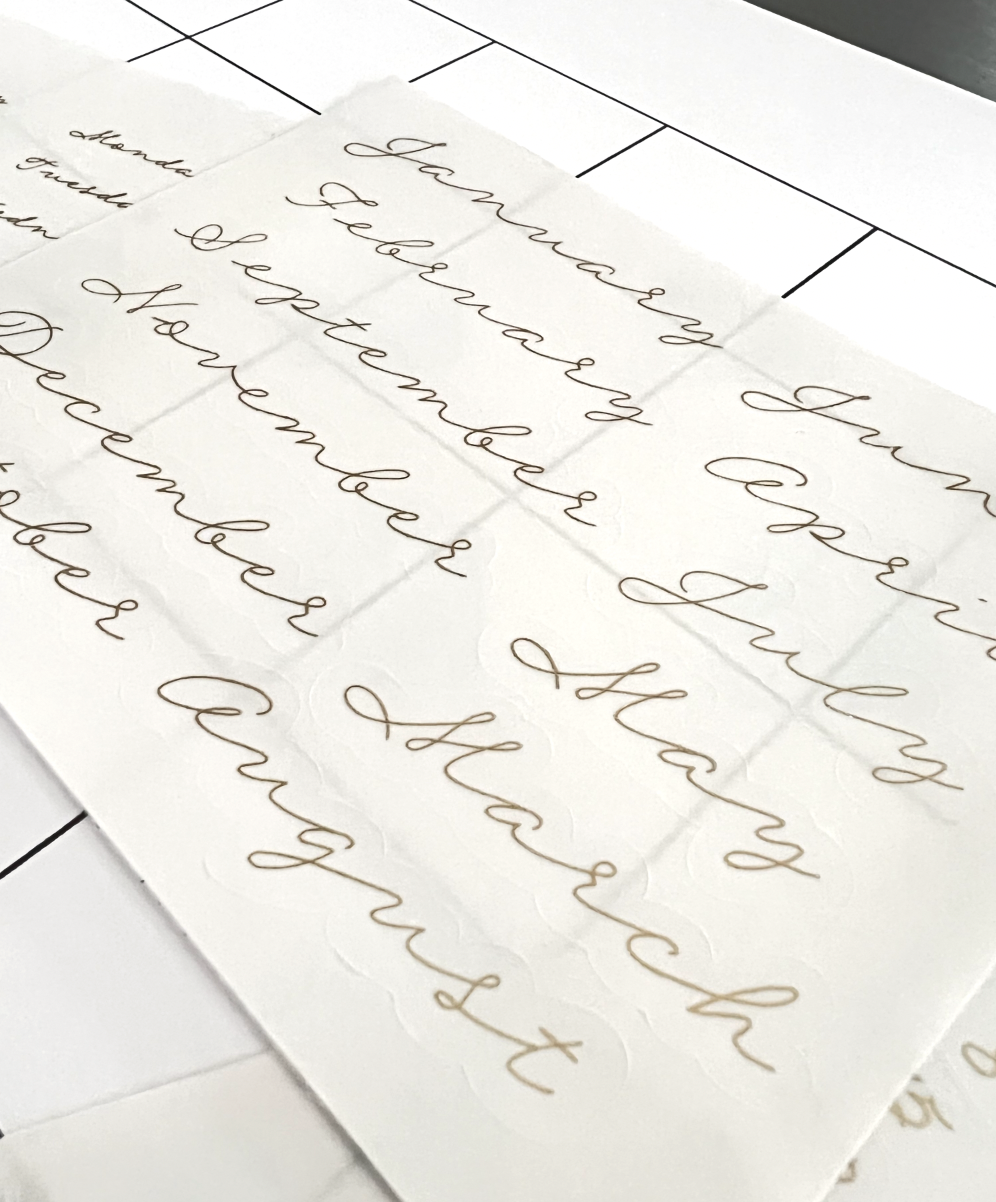 Monda
Tuesda
edn
January
February
September
November
December
tober
Jun
Apri
July
May
March
August